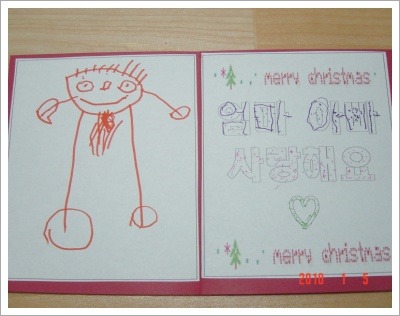 merry christmas
엄마 아빠
사랑해요
merry christmas
2010 1 5